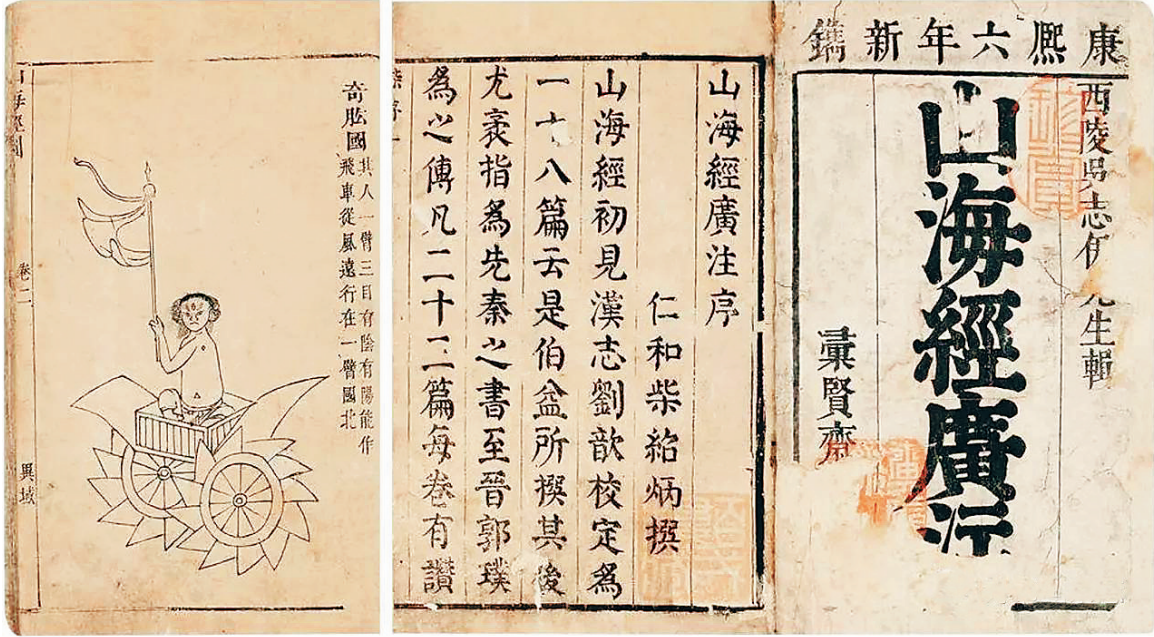 康熙六年新鐫
西陵吳志伊先生輯
山海經廣注
彙賢齋
山海經廣注序
仁和柴紹炳撰
山海經初見漢志劉歆校定爲
一十八篇云是伯益所撰其後
尤袤指爲先秦之書至晉郭璞
爲之傳凡二十二篇每卷有讚
奇肱國
其人一臂三目有陰有陽能作
飛車從風遠行在一臂國北
山海經圖
卷二
異域